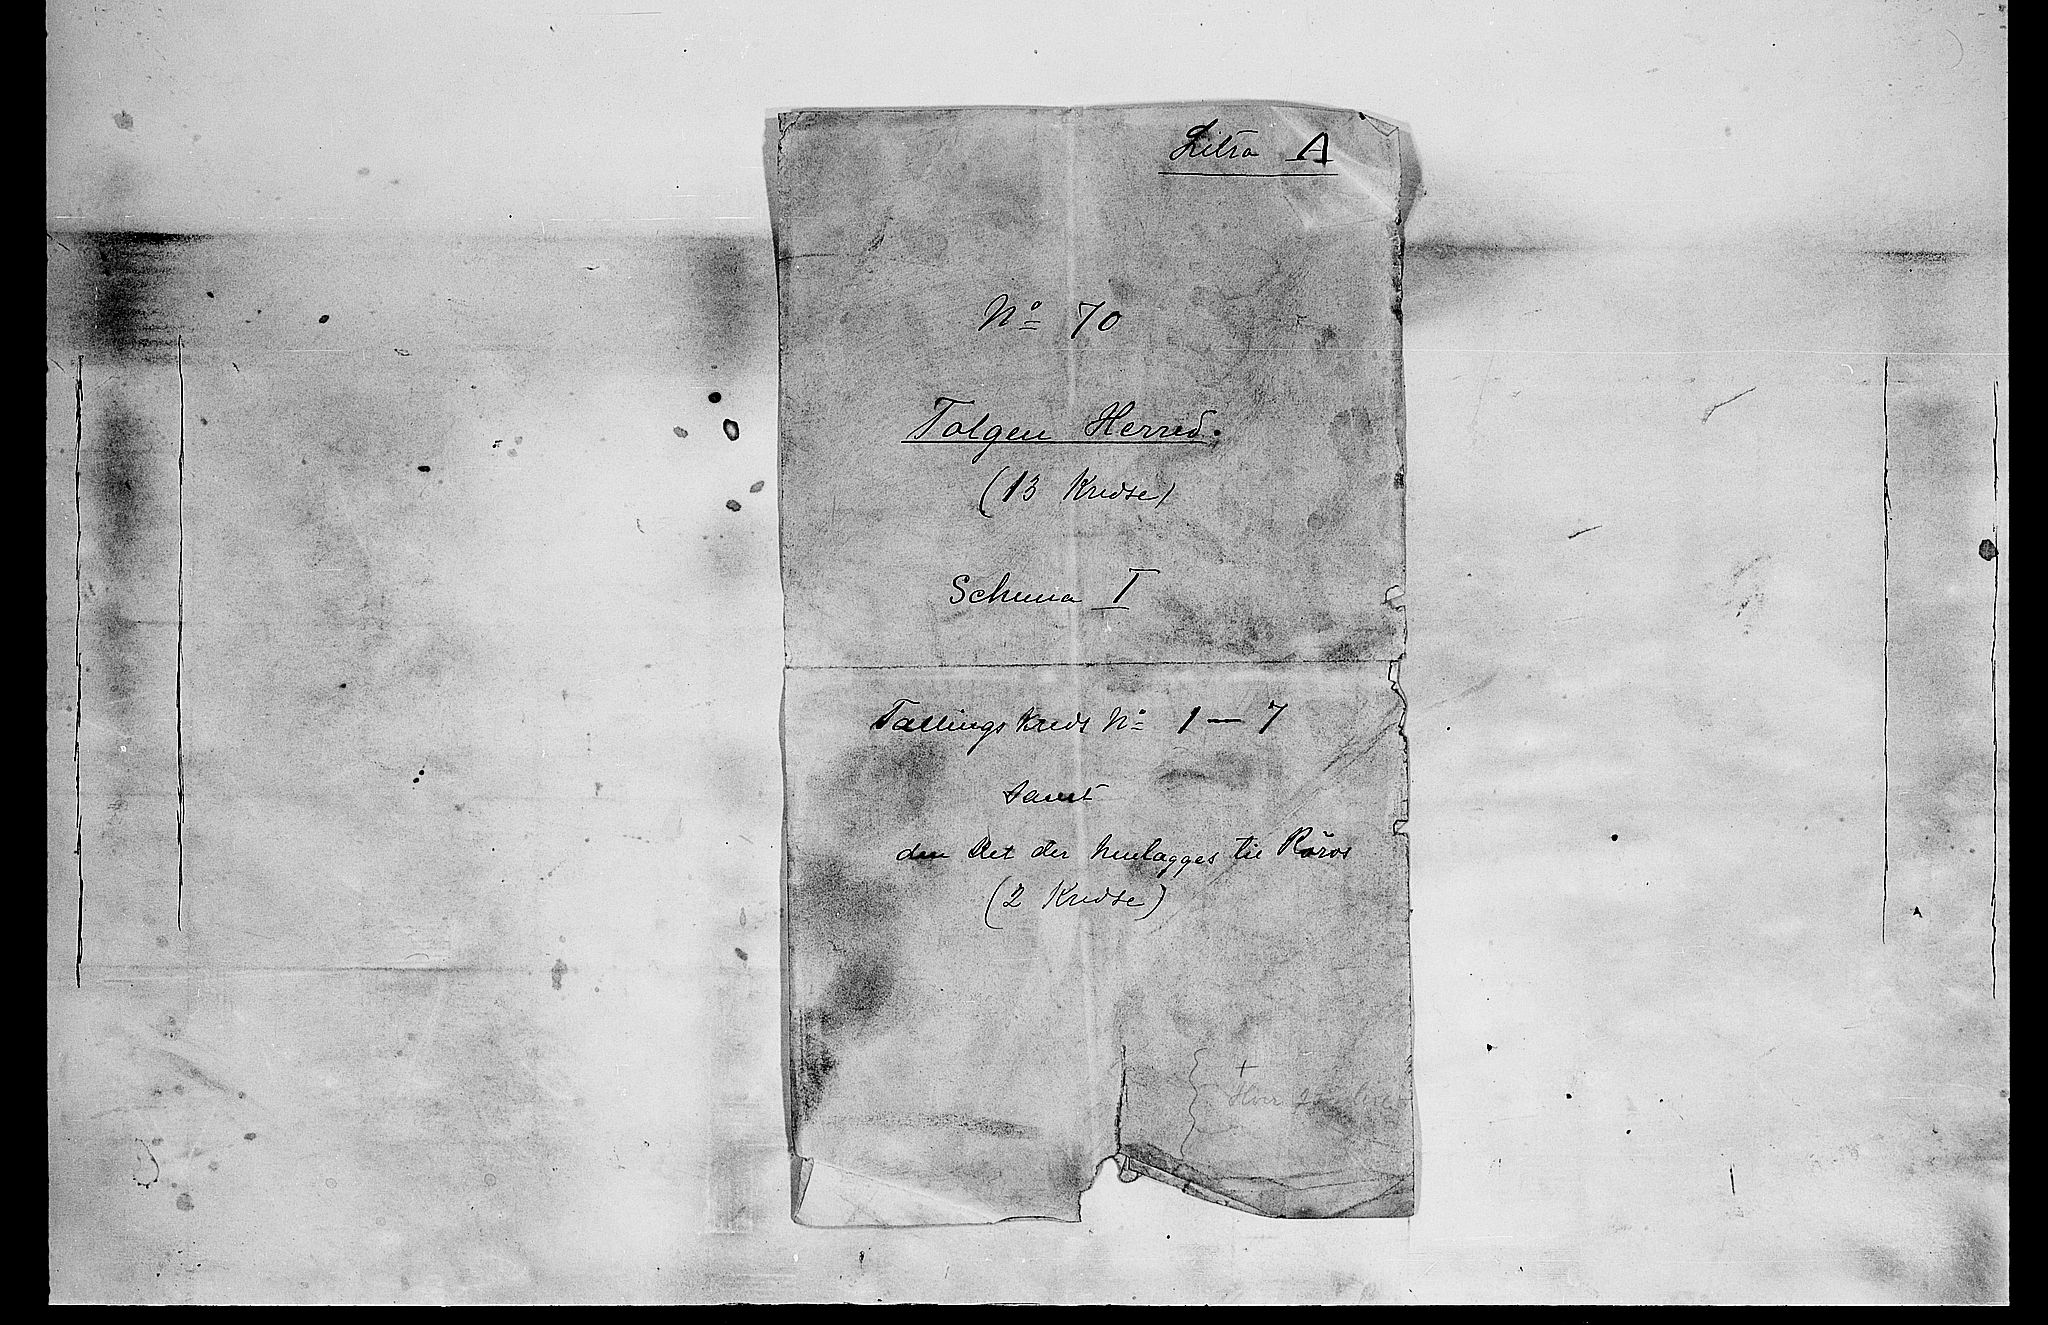 Litra A
No 70
Tolgen Herred.
(13 Kredse)
Schema I
Tællingskreds No 1 — 7
samt
den Del der henlægges til Røros
(2 Kredse)
+
Hver